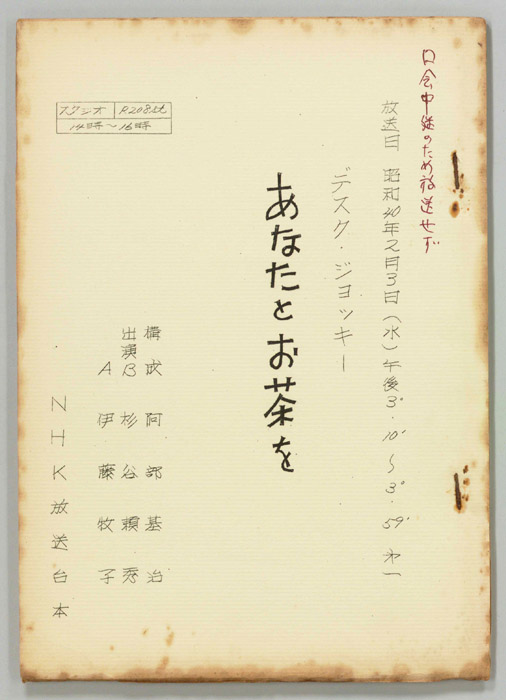 口会中継のため放送せず
放送日 昭和40年2月3日(水)午後3°・10'～3°・59' 才一
デスク・ジョッキー
あなたとお茶を
スタジオ R208st
14時～16時
構成 阿部基治
出演 B 杉谷頼秀
A 伊藤牧子
NHK放送台本